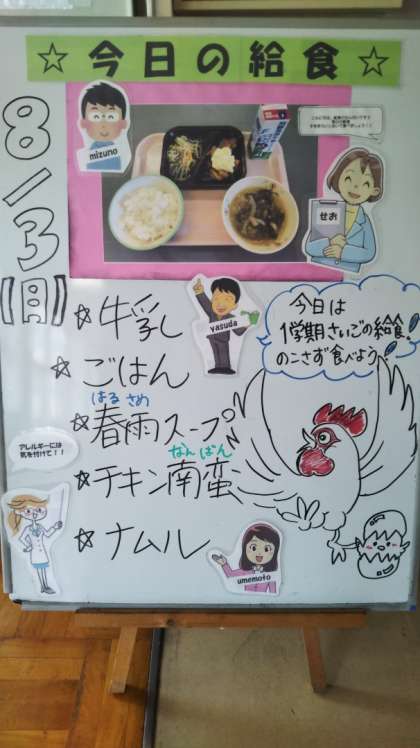 ☆今日の給食☆
8/3【月】
mizuno
せお
yasuda
今日は
1学期さいごの給食。
のこさず食べよう
☆牛乳
☆ごはん
はるさめ
☆春雨スープ
なんばん
☆チキン南蛮
☆ナムル
アレルギーには
気を付けて！！
umemoto